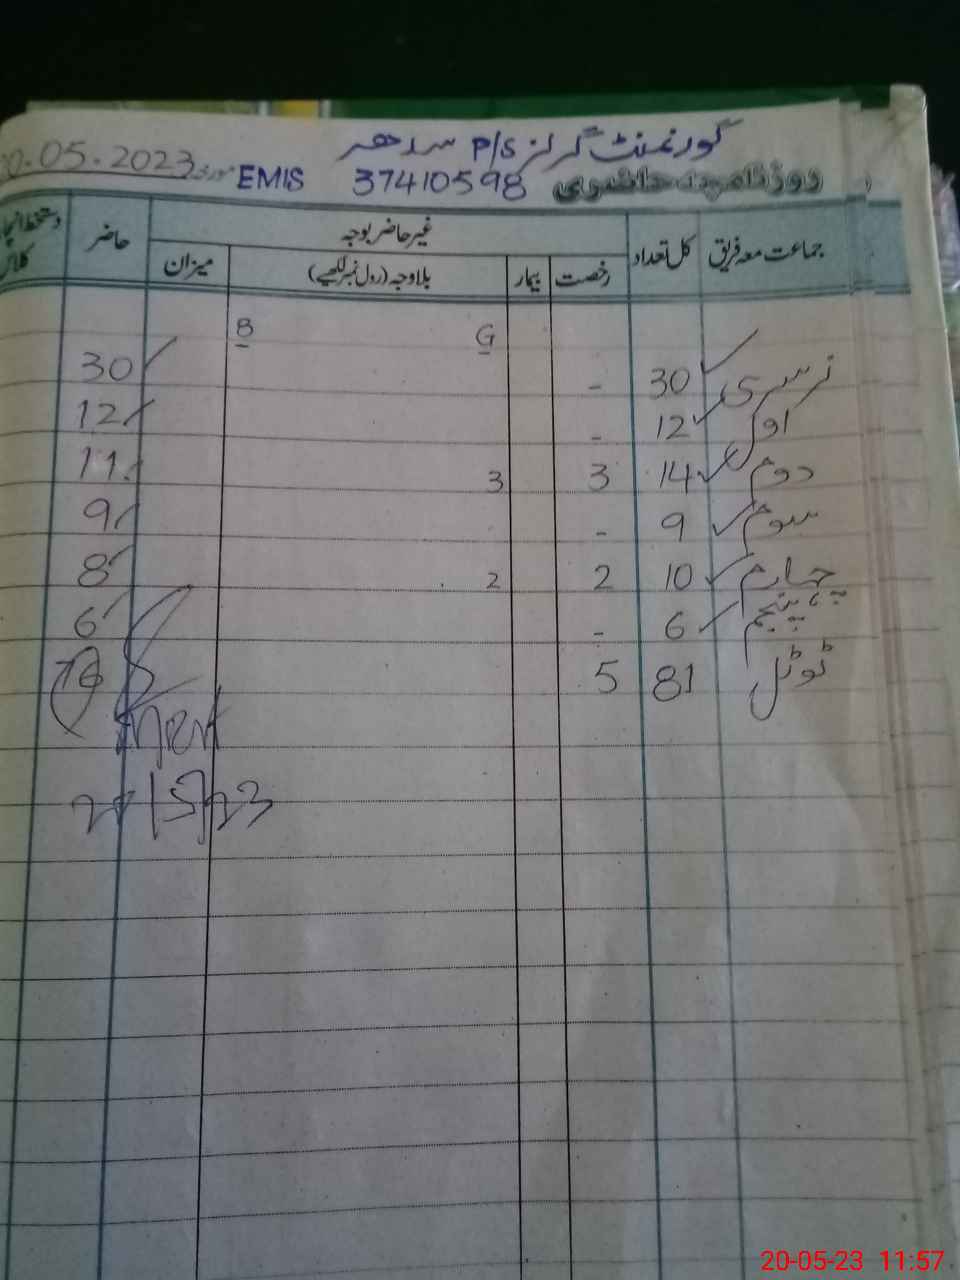 گورنمنٹ گرلز P/S سدھر
روزنامچہ حاضری 37410598 EMIS مورخہ 20.05.2023
جماعت معہ فریق کل تعداد غیر حاضر بوجہ حاضر دستخط انچارج کلاس
رخصت بیمار بلاوجہ (رول نمبر لکھیے) میزان
G B
نرسری 30 - 30
اول 12 - 12
دوم 14 3 3 11
سوم 9 - 9
چہارم 10 2 2 8
پنجم 6 - 6
ٹوٹل 81 5 76
20-05-23 11:57